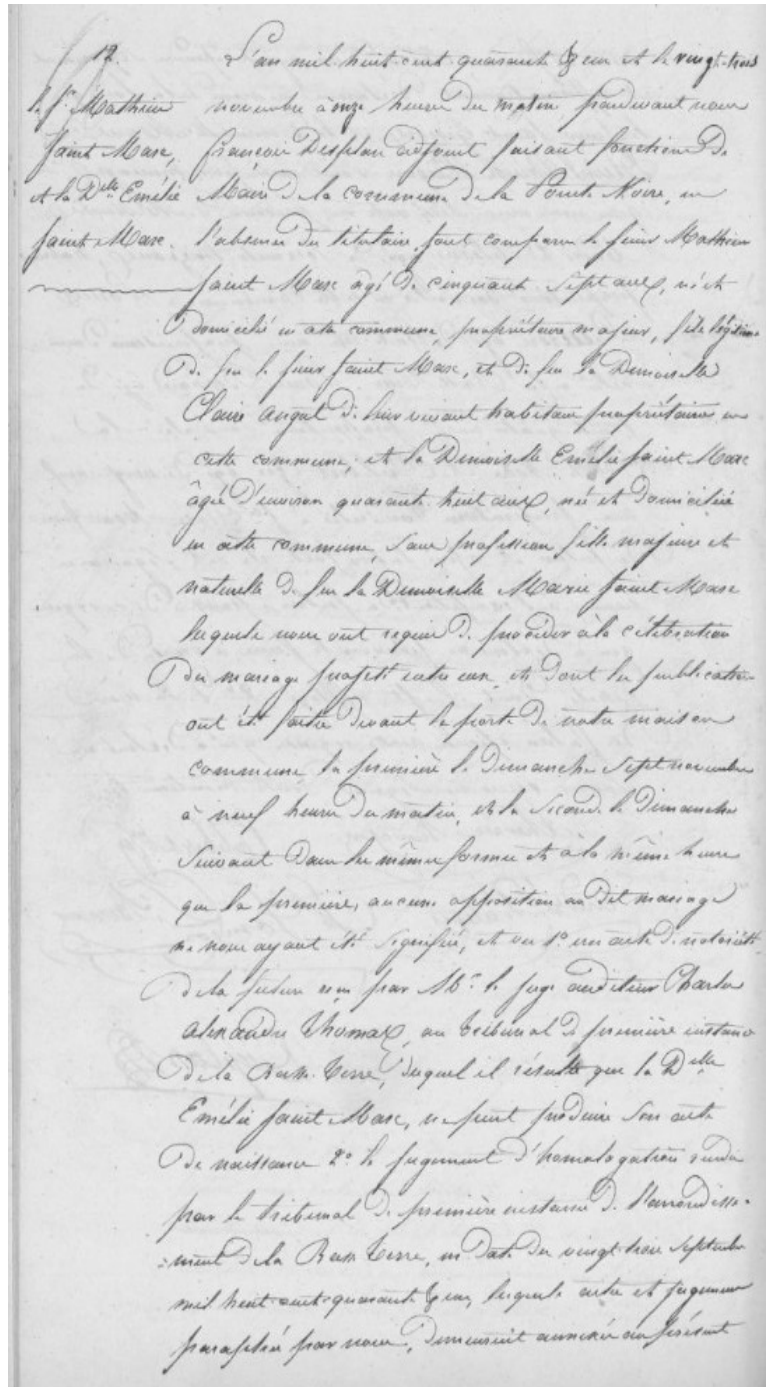 12.
le Sr. Mathieu
Saint Marc,
et la Dlle Emélie
Saint Marc.
L'an mil huit cent quarante et le vingt-trois
novembre à onze heures du matin pardevant nous
françois Desplan adjoint faisant fonctions de
Maire de la commune de la Pointe Noire, en
l'absence du titulaire, sont comparu le sieur Mathieu
Saint Marc âgé de cinquante sept ans, né et
domicilié en cette commune, propriétaire majeur, fils légitime
de feu le sieur Saint Marc, et de feu la Demoiselle
Claire de leur vivant habitans propriétaires en
cette commune; et la Demoiselle Emélie Saint Marc
âgée d'environ quarante huit ans, née et domiciliée
en cette commune, sans profession fille majeure et
naturelle de feu la Demoiselle Marie Saint Marc
lesquels nous ont requis de procéder à la célébration
du mariage projeté entre eux, et dont les publications
ont été faites devant la porte de notre maison
commune, la première le dimanche sept novembre
à neuf heures du matin, et la seconde le dimanche
suivant dans les mêmes formes et à la même heure
que la première, aucune opposition au dit mariage
ne nous ayant été signifiée, et vu 1o. un acte de notoriété
de la future reçu par Mr. le juge auditeur Charles
Alexandre Thomas, au tribunal de première instance
de la Basse-Terre, duquel il résulte que la Dlle
Emélie Saint Marc, ne peut produire son acte
de naissance 2o. le jugement d'homologation rendu
par le tribunal de première instance de l'arrondisse-
=ment de la Basse Terre, en date du vingt-trois septembre
mil huit-cent-quarante lesquels acte et jugement
paraphés par nous, demeurent annexés au présent